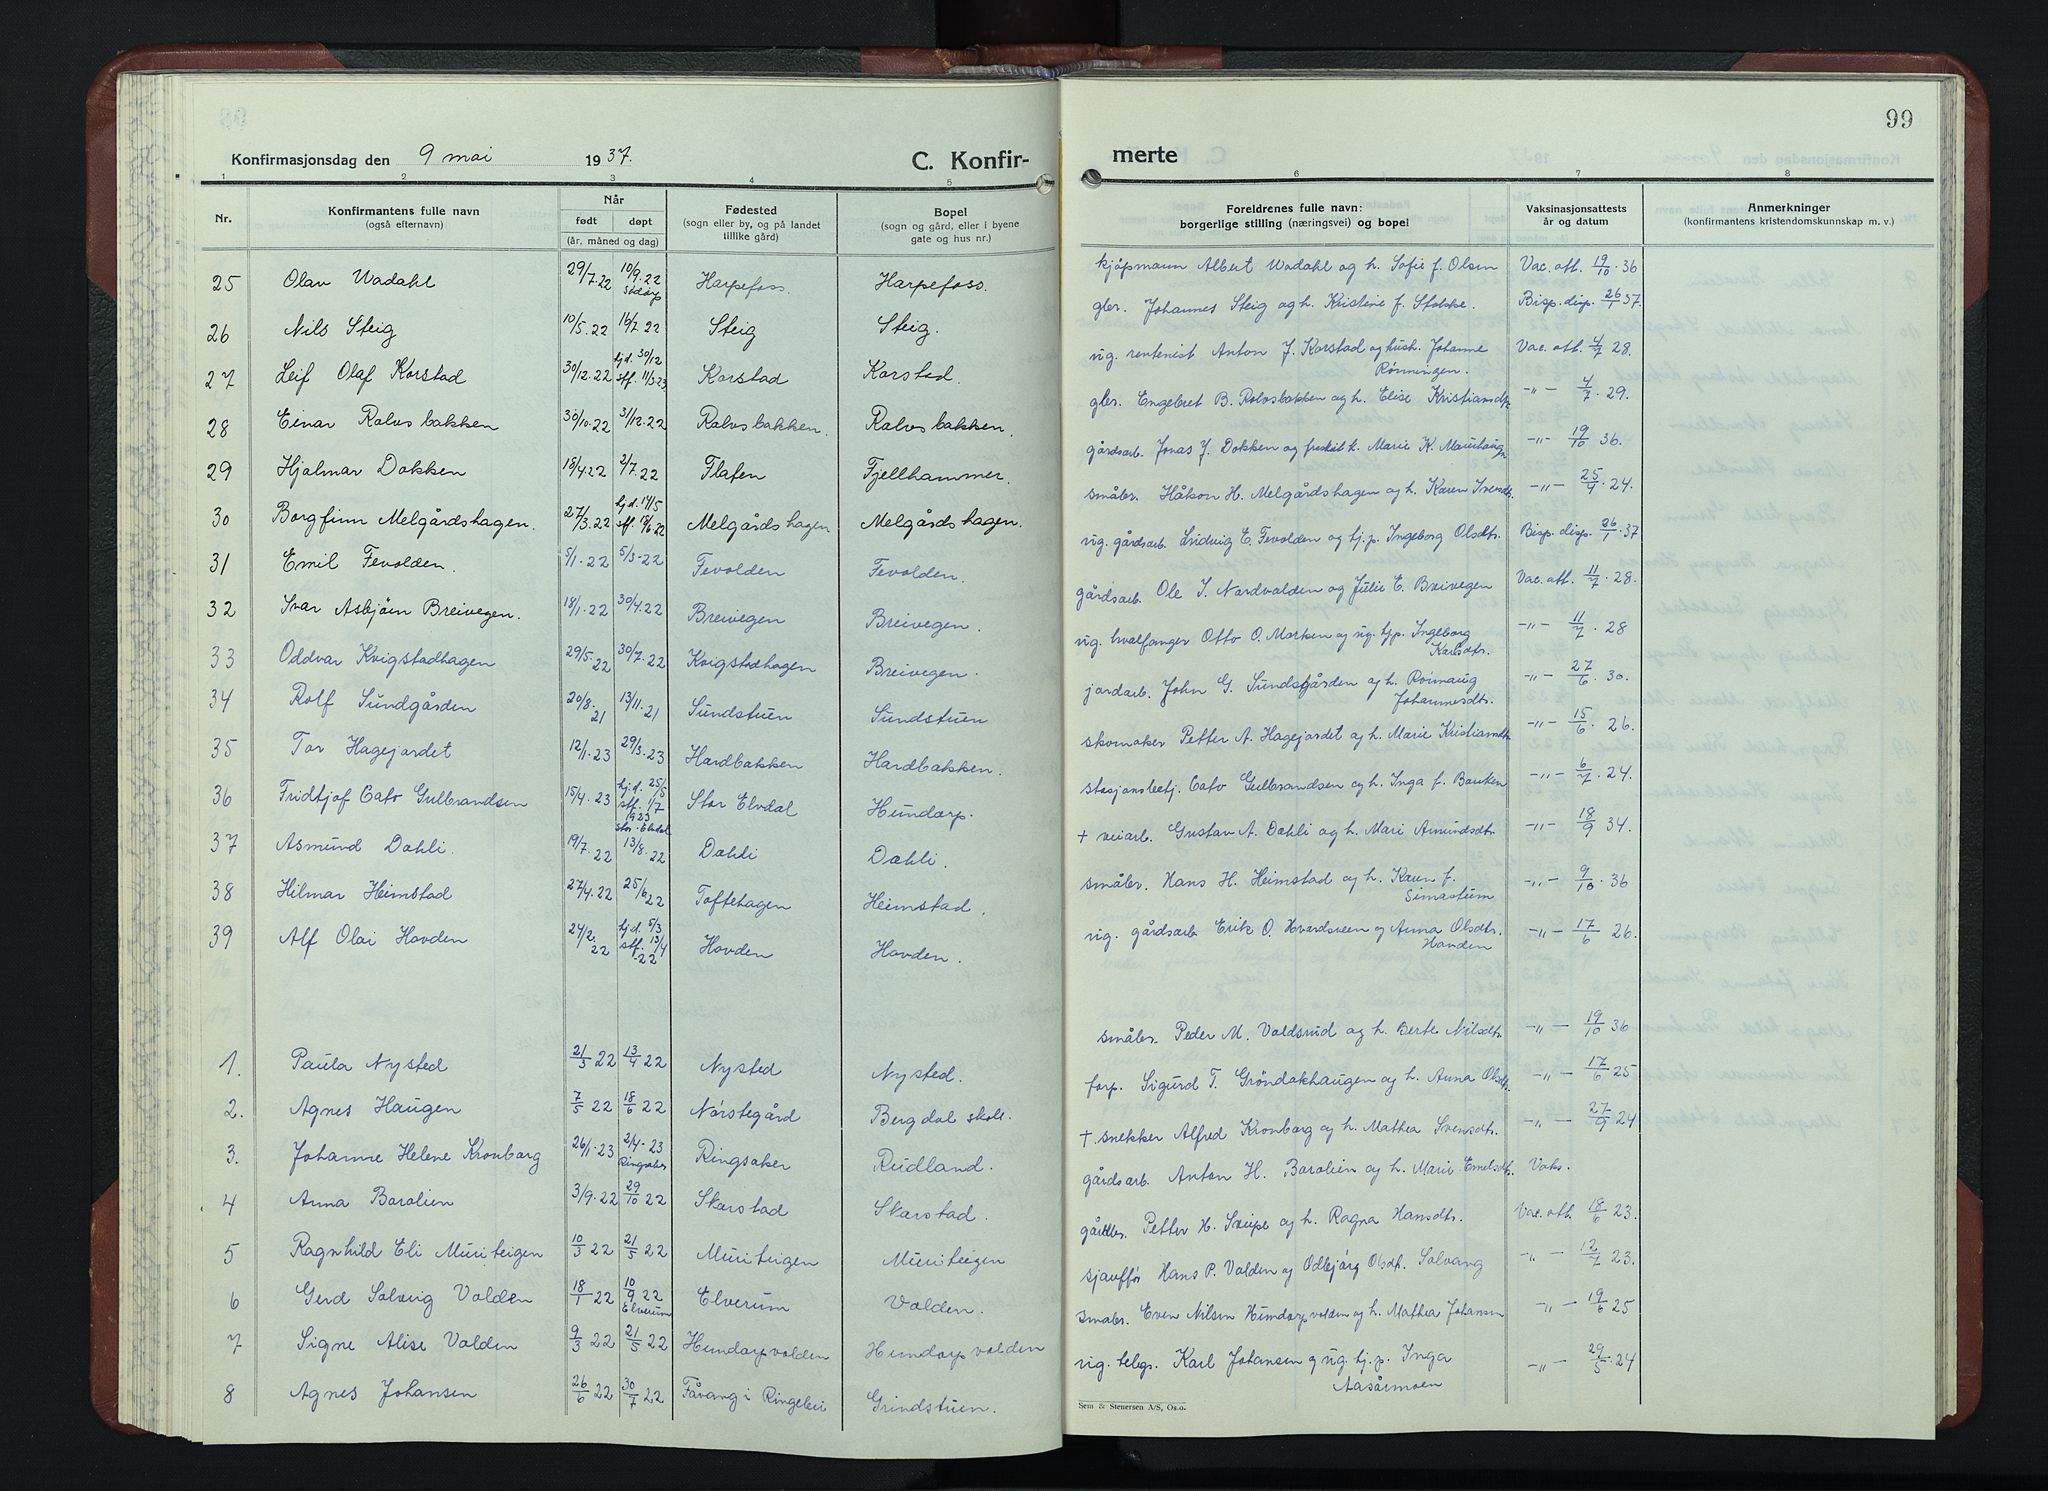 99
Konfirmasjonsdag den 9 mai 1937. C. Konfir- merte
1 2 3 4 5 6 7 8
Nr. Konfirmantens fulle navn (også efternavn) Når født døpt (år, måned og dag) Fødested (sogn eller by, og på landet tillike gård) Bopel (sogn og gård, eller i byene gate og hus nr.) Foreldrenes fulle navn: borgerlige stilling (næringsvei) og bopel Vaksinasjonsattests år og datum Anmerkninger (konfirmantens kristendomskunnskap m. v.)
25 Olav Wadahl 29/7.22 10/9.22 Sødorp Harpefoss. Harpefoss. kjøpmann Albert Wadahl og h. Sofie f. Olsen Vac. att. 19/10.36
26 Nils Steig 10/5.22 16/7.22 Steig Steig. gbr. Johannes Steig og h. Kristine f. Stokke. Bisp. disp. 26/1 37.
27 Leif Olaf Korstad 30/12.22 hjd. 30/12 stf. 11/3 23 Korstad Korstad. ug. rentenist Anton J. Korstad og hush. Johanne Rønningen. Vac. att. 4/7 28.
28 Einar Rolvsbakken 30/10.22 31/12.22 Rolvsbakken. Rolvsbakken. gbr. Engebret B. Rolvsbakken og h. Elise Kristiansdtr -"- 4/7.29.
29 Hjalmar Dokken 15/4.22 2/7.22 Flaten Fjellhammer. gårdsarb. Jonas J. Dokken og fraskilt h. Marie K. Maurhaugn -"- 19/10 36.
30 Borgfinn Melgårdshagen. 27/3.22 hjd. 14/5 stf. 18/6 22 Melgårdshagen Melgårdshagen. småbr. Håkon H. Melgårdshagen og h. Karen Iversdtr. -"- 25/9.24.
31 Emil Fevolden. 5/1.22 5/3-22 Fevolden Fevolden. ug. gårdsarb. Ludvig E. Fevolden og tj.p. Ingeborg Olsdtr. Bisp. disp. 26/1.37
32 Ivar Asbjørn Breivegen. 18/1.22 30/4.22 Breivegen Breivegen. gårdsarb. Ole I. Nordvolden og Julie E. Breivegen Vac. att. 11/7.28.
33 Oddvar Kvigstadhagen 29/5.22 30/7.22 Kvigstadhagen Breivegen. ug. hvalfanger Otto O. Morken og ug. tjp. Ingeborg Karlsdtr. -"- 11/7.28
34 Rolf Sundgården 20/8.21 13/11.21 Sundstuen Sundstuen jordarb. John G. Sundsgården og h. Rønnaug Johannesdtr. -"- 27/6.30.
35 Tor Hagejordet 12/1.23 29/3.23 Hardbakken Hardbakken. skomaker Petter A. Hagejordet og h. Marie Kristiansdtr -"- 15/6.26.
36 Fridtjof Cato Gulbrandsen 15/4.23 hjd. 25/5 stf. 1/7 1923 Stor-Elvdal Stor Elvdal Hundorp. stasjonsbetj. Cato Gulbrandsen og h. Inga f. Bauken -"- 6/7.24.
37 Asmund Dahli. 19/7.22 13/8.22 Dahli Dahli. + veiarb. Gustav A. Dahli og h. Mari Amundsdtr. -"- 18/9 34.
38 Hilmar Heimstad 27/4.22 25/6 22 Toftehagen Heimstad. småbr. Hans H. Heimstad og h. Karen f. Simastuen -"- 9/10.36
39 Alf Olai Hovden 24/2.22 hjd. 5/3 stf. 13/4 -22 Hovden Hovden. ug. gårdsarb. Erik O. Hvardsveen og Anna Olsdtr. Hovden -"- 17/6 26.
1. Paula Nysted 21/3 22 13/4 22 Nysted Nysted. småbr. Peder M. Voldsrud og h. Berte Nilsdtr. -"- 19/10 36
2. Agnes Haugen 7/5 22 18/6 22 Nørstegård Bergdal skole. forp. Sigurd T. Gröndokhaugen og h. Anna Olsdtr. -"- 17/6 25
3. Johanne Helene Kronborg 26/1.23 2/4-23 Ringsaker Ringsaker Rudland. + snekker Alfred Kronborg og h. Mathea Svensdtr. -"- 27/9 24
4 Anna Barolien 3/9.22 29/10 22 Skarstad Skarstad. gårdsarb. Anton H. Barolien og h. Marie Emelsdtr. Vaks.
5 Ragnhild Eli Muriteigen 10/3 22 21/5 22 Muriteigen Muriteigen gårdbr. Petter H. Sveipe og h. Ragna Hansdtr. Vac. att. 18/6 23.
6 Gerd Solveig Volden 18/1 22 10/9 22 Elverum Elverum Volden. sjauffør Hans P. Volden og Odbjørg Olsdt. Solvang -"- 12/7 23.
7 Signe Alise Volden 9/3 22 21/5 22 Hundorpvolden Hundorpvolden småbr. Even Nilsen Hundorpvolden og h. Mathea Johansen -"- 19/6 25
8 Agnes Johansen 26/6 22 30/7 22 Fåvang i Ringebu Grindstuen. ug. telegr. Karl Johansen og ug. tj.p. Inga Aasårmoen -"- 29/5.24
Sem & Stenersen A/S, Oslo.